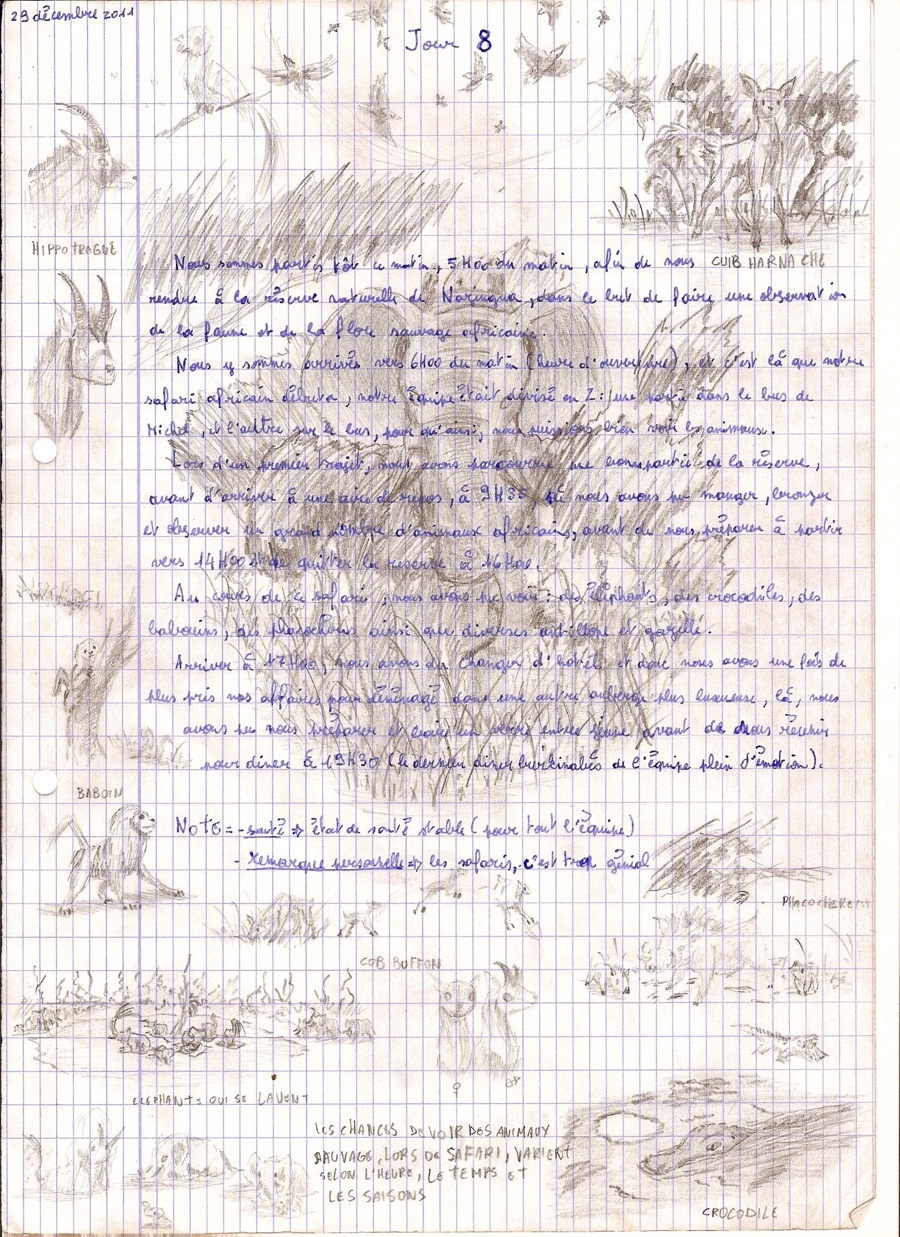 29 décembre 2011
Jour 8
HIPPOTRAGUE
Nous sommes partis tôt ce matin, 5H00 du matin, afin de nous
GUIB HARNACHE
rendre à la réserve naturelle de Nazinga, dans le but de faire une observation
de la faune et de la flore sauvage africaine.
Nous y sommes arrivés vers 6H00 du matin (heure d'ouverture), et c'est là que notre
safari africain débuta, notre équipe était divisé en 2 : une partie dans le bus de
Michel, et l'autre sur le bus, pour qu'ainsi, nous puissions bien voir les animaux.
Lors d'un premier trajet, nous avons parcourue une bonne partie de la réserve,
avant d'arriver à une aire de repos, à 9H35 où nous avons pu manger, bronzer
et observer un grand nombre d'animaux africains, avant de nous préparer à partir
vers 14H00 et de quitter la réserve à 16H00.
Au cours de ce safari, nous avons pu voir : des éléphants, des crocodiles, des
babouins, des phacochères ainsi que diverses antilope et gazelle.
Arriver à 17H00, nous avons du changer d'hôtel et donc nous avons une fois de
plus pris nos affaires pour déménagé dans une autre auberge plus luxueuse, là, nous
avons pu nous préparer et boire un verre entre jeune avant de nous réunir
pour diner à 19H30 (le dernier diner burkinabés de l'équipe plein d'émotion).
BABOIN
Note = - santé => état de santé stable (pour tout l'équipe)
- Remarque personnelle => les safaris, c'est trop génial
PHACOCHERE
COB BUFFON
♀ ♂
ELEPHANTS QUI SE LAVENT
LES CHANCES DE VOIR DES ANIMAUX
SAUVAGE, LORS DE SAFARI, VARIENT
SELON L'HEURE, LE TEMPS ET
LES SAISONS
CROCODILE